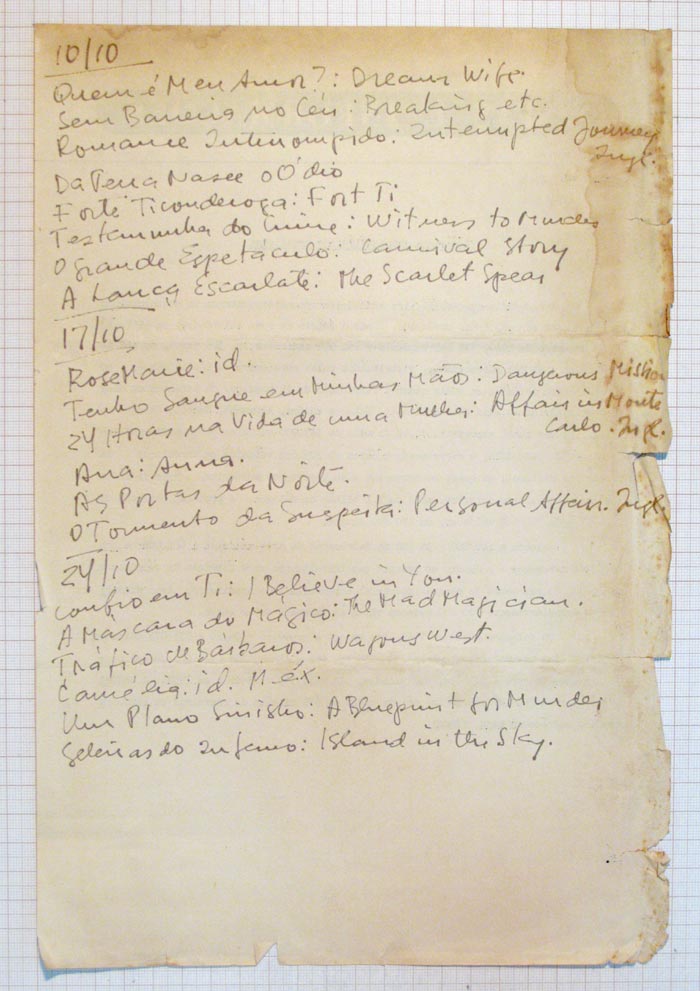 10/10
Quem é Meu Amor?: Dream Wife.
Sem Barreira no Céu: Breaking etc.
Romance Interrompido: Interrupted Journey
Ingl.
Da Terra Nasce o Ódio
Forte Ticonderoga: Fort Ti
Testemunha do Crime: Witness to Murder
O Grande Espetáculo: Carnival Story
A Lança Escarlate: The Scarlet Spear
17/10
Rose Marie: id.
Tenho Sangue em Minhas Mãos: Dangerous Mission
24 Horas na Vida de uma Mulher: Affair in Monte
Carlo. Ingl.
Ana: Anna.
As Portas da Norte.
O Tormento da Suspeita: Personal Affair. Ingl.
24/10
Confio em Ti: I Believe in You.
A Máscara do Mágico: The Mad Magician.
Tráfico de Bárbaros: Wagons West.
Camélia: id. Méx.
Um Plano Sinistro: A Blueprint for Murder
Geleiras do Inferno: Island in the Sky.